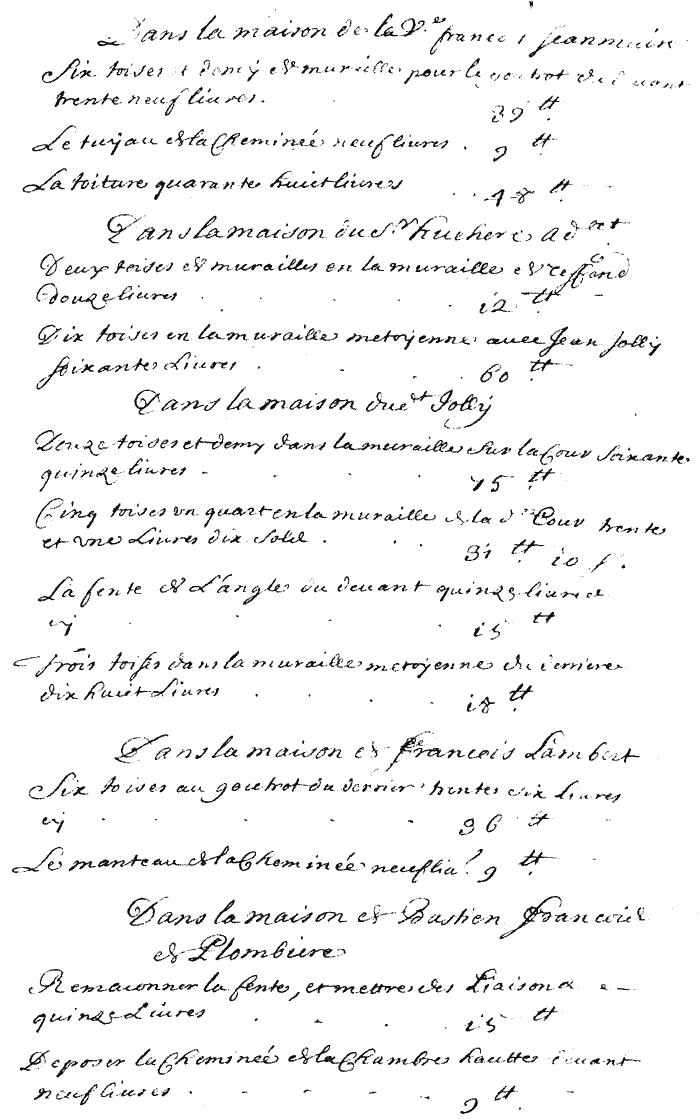 Dans la maison de la V.ve francois Jeanmaire
Six toises et demÿ de muraille pour le goutrot du devant
trente neuf livres. 39 tt
Le tuÿau de la Cheminée neuf livres . 9 tt
La toiture quarante huict livres . 48 tt
Dans la maison du S.r huchere ad
Deux toises de murailles en la muraille de reffend
douze livres . . . 12 tt
Dix toises en la muraille metoÿenne avec Jean Jollÿ
soixante Livres . . . 60 tt
Dans la maison dudt Jollÿ
Douze toises et demy dans la muraille sur la Cour soixante
quinze livres . . . 75 tt
Cinq toises vn quart en la muraille de lad.te Cour trente
et vne Livres dix sold . . . 31 tt 10 s.
La fente de L'angle du devant quinze livres
cÿ . . . 15 tt
Trois toises dans la muraille metoÿenne du derriere
dix huict Livres . . . 18 tt
Dans la maison de francois Lambert
Six toises au goutrot du derrier trentes six Livres
cÿ . . . 36 tt
Le manteau de la Cheminée neuf liv.s 9 tt
Dans la maison de Bastien francois
de Plombiere
Remaconner la fente, et mettre des Liaisons
quinze Livres . . . 15 tt
Deposer la Cheminée de la Chambre hautte devant
neuf livres . . . 9 tt